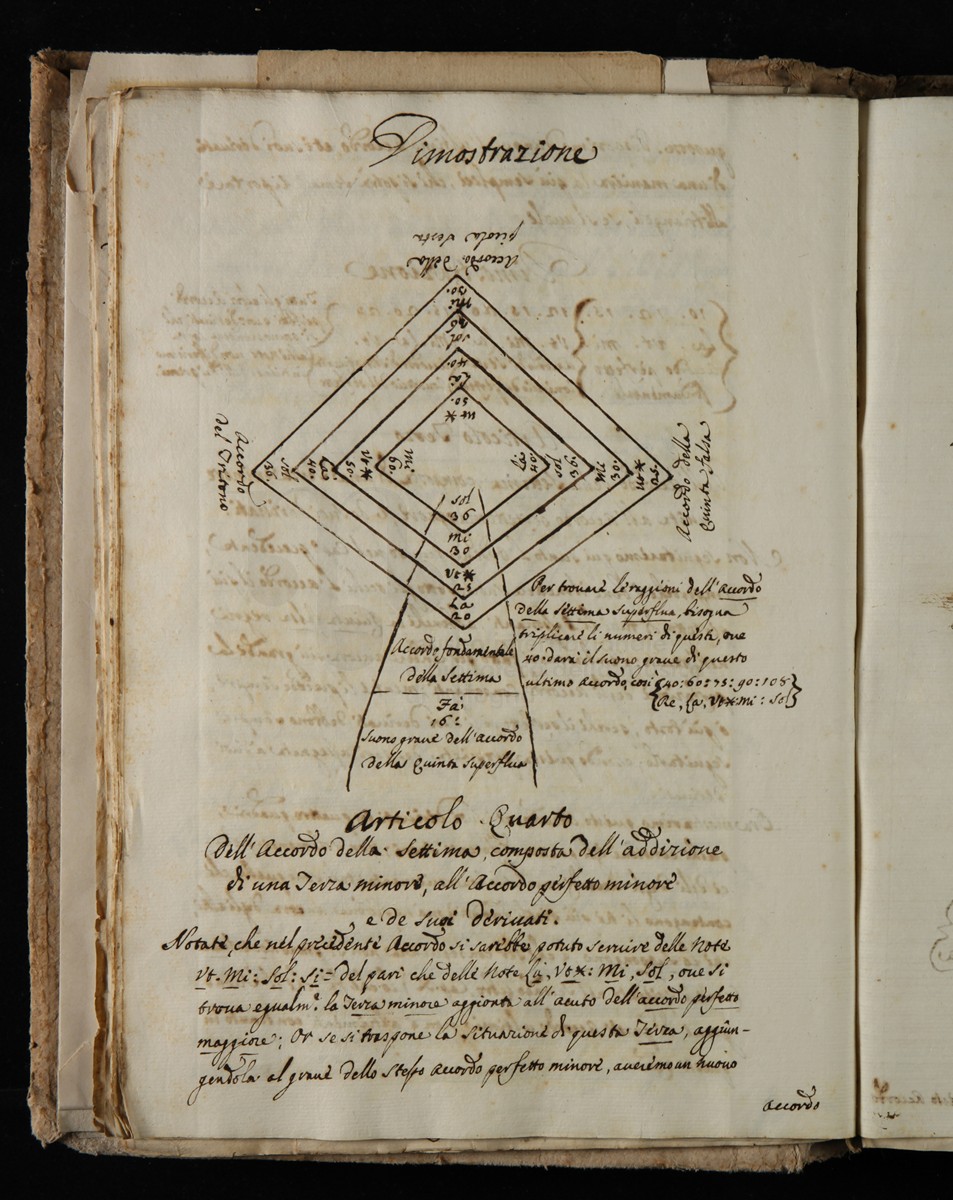 Dimostrazione
Accordo della
picola sesta
30.
Mi
36
sol
40.
La
50.
ut*
Accordo
del Tritono
36.
sol
40.
La
50.
Vt*
60.
Mi
La
40
sol
36.
Mi
30.
ut*
25.
Accordo della
Quinta falsa
sol
36
mi
30
Vt*
25
La
20
Accordo fondamentale
della Settima
Fa
16:
Suono grave dell'accordo
della Quinta superflua
Per trovare le raggioni dell'accordo
della Settima Superflua, bisogna
triplicare li numeri di questi, ove
40. darà il suono grave di questo
ultimo accordo, così {40: 60: 75: 90: 108}
{Re, La, Vt*: mi: Sol}
Articolo Quarto
Dell'Accordo della Settima, composta dell'addizione
di una Terza minore, all'Accordo perfetto minore
e de suoi derivati.
Notate, che nel precedente Accordo si sarebbe potuto servire delle note
Vt. Mi: Sol: Si= del pari che delle note La, Vt*: Mi, Sol, ove si
trova egualm.e la Terza minore aggionta all'acuto dell'accordo perfetto
maggiore; Or se si traspone la situazione di questa Terza, aggiun-
gendola al grave dello stesso accordo perfetto minore, averemo un nuovo
accordo